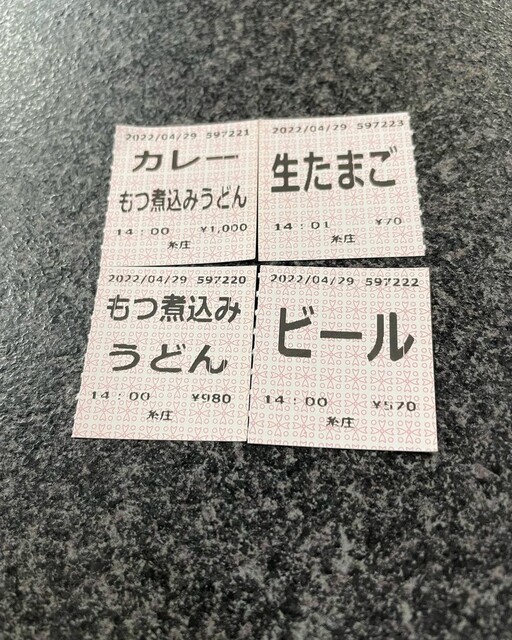 2022/04/29 597221
カレー
もつ煮込みうどん
14:00 ¥1,000
糸庄
2022/04/29 597223
生たまご
14:01 ¥70
糸庄
2022/04/29 597220
もつ煮込み
うどん
14:00 ¥980
糸庄
2022/04/29 597222
ビール
14:00 ¥570
糸庄